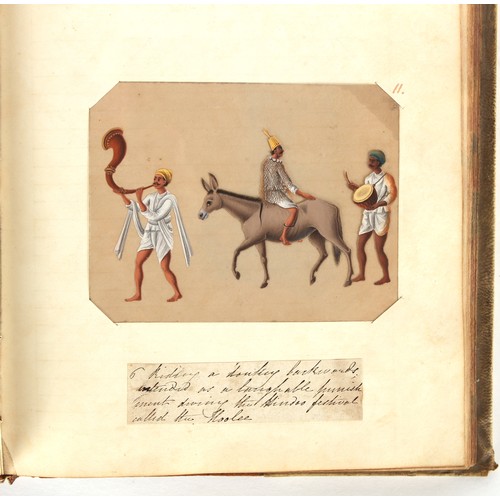 11.
6 Riding a donkey backwards,
intended as a laughable punish
ment during the Hindoo festival
called the Hoolee